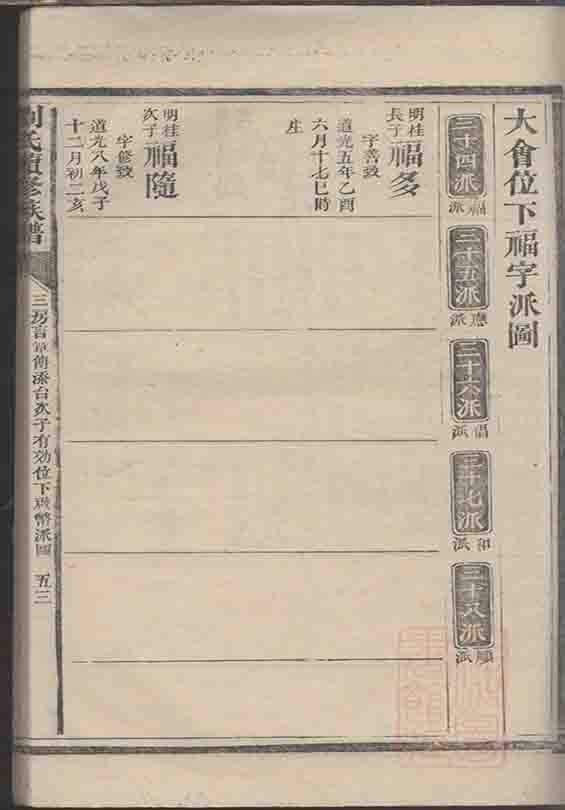 大會位下福字派圖
三十四派
福派
三十五派
應派
三十六派
倡派
三十七派
和派
三十八派
順派
明桂
長子
福多
字善致
道光五年乙酉
六月十七巳時
生
明桂
次子
福隨
字修致
道光八年戊子
十二月初二亥
劉氏續修族譜
三房言章傳添台次子有効位下
派圖
五三